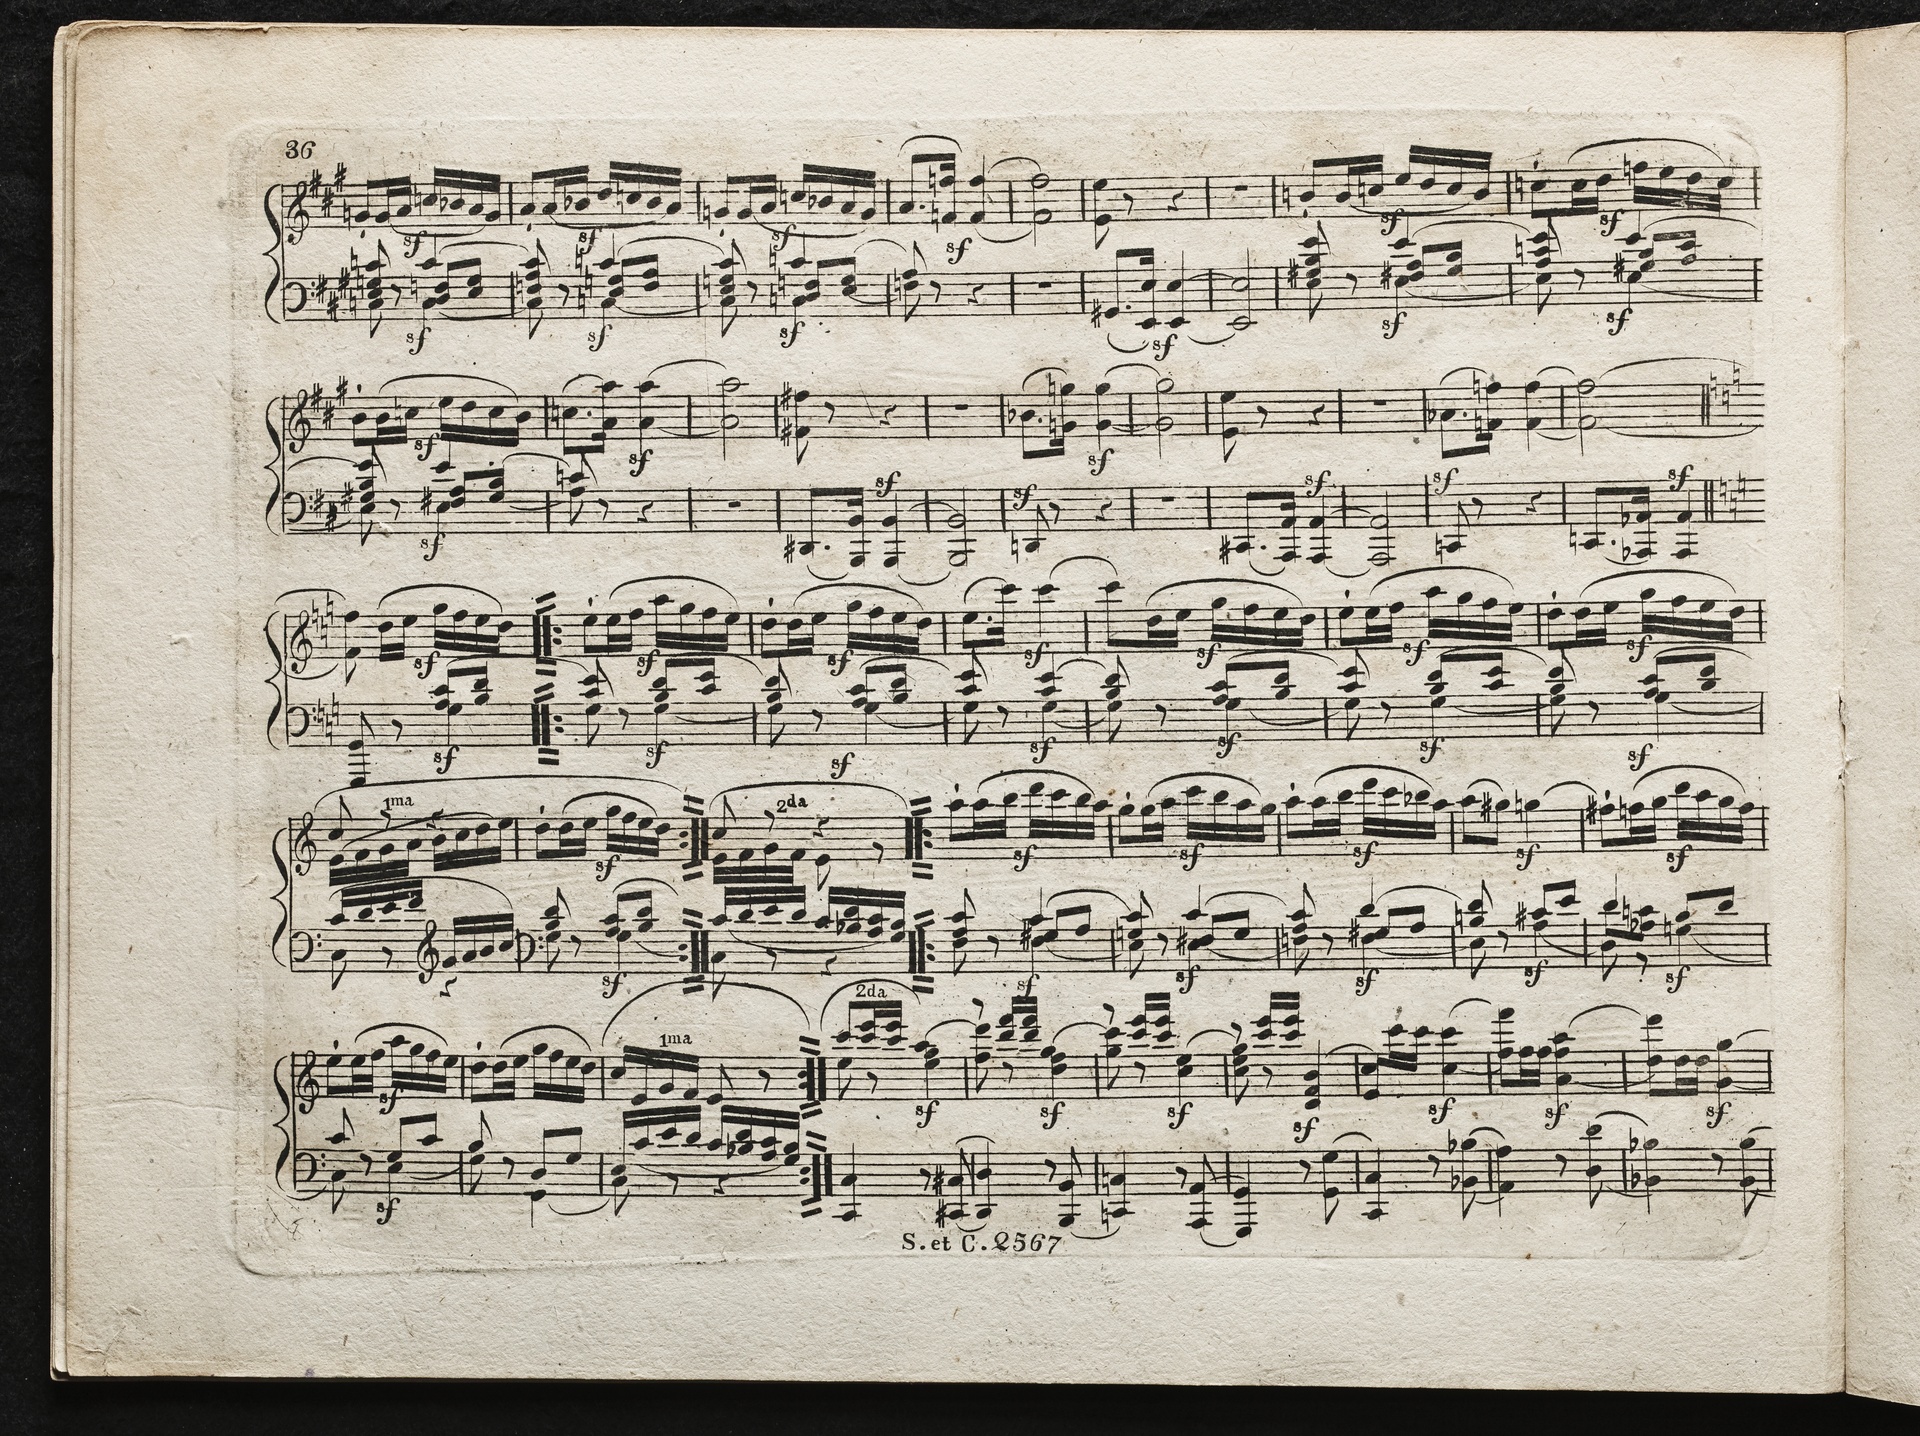 36
sf sf sf sf
sf sf sf sf sf sf sf sf
sf sf sf
sf sf sf sf sf sf
sf sf sf sf sf sf
sf sf sf sf sf sf
1ma 2da
sf sf sf sf sf
sf sf sf sf sf sf
2da
1ma
sf sf sf sf sf sf sf sf
sf
S. et C. 2567